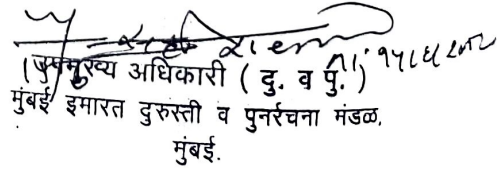 उपमुख्य अधिकारी ( दु. व पु. )
मुंबई इमारत दुरुस्ती व पुनर्रचना मंडळ,
मुंबई.